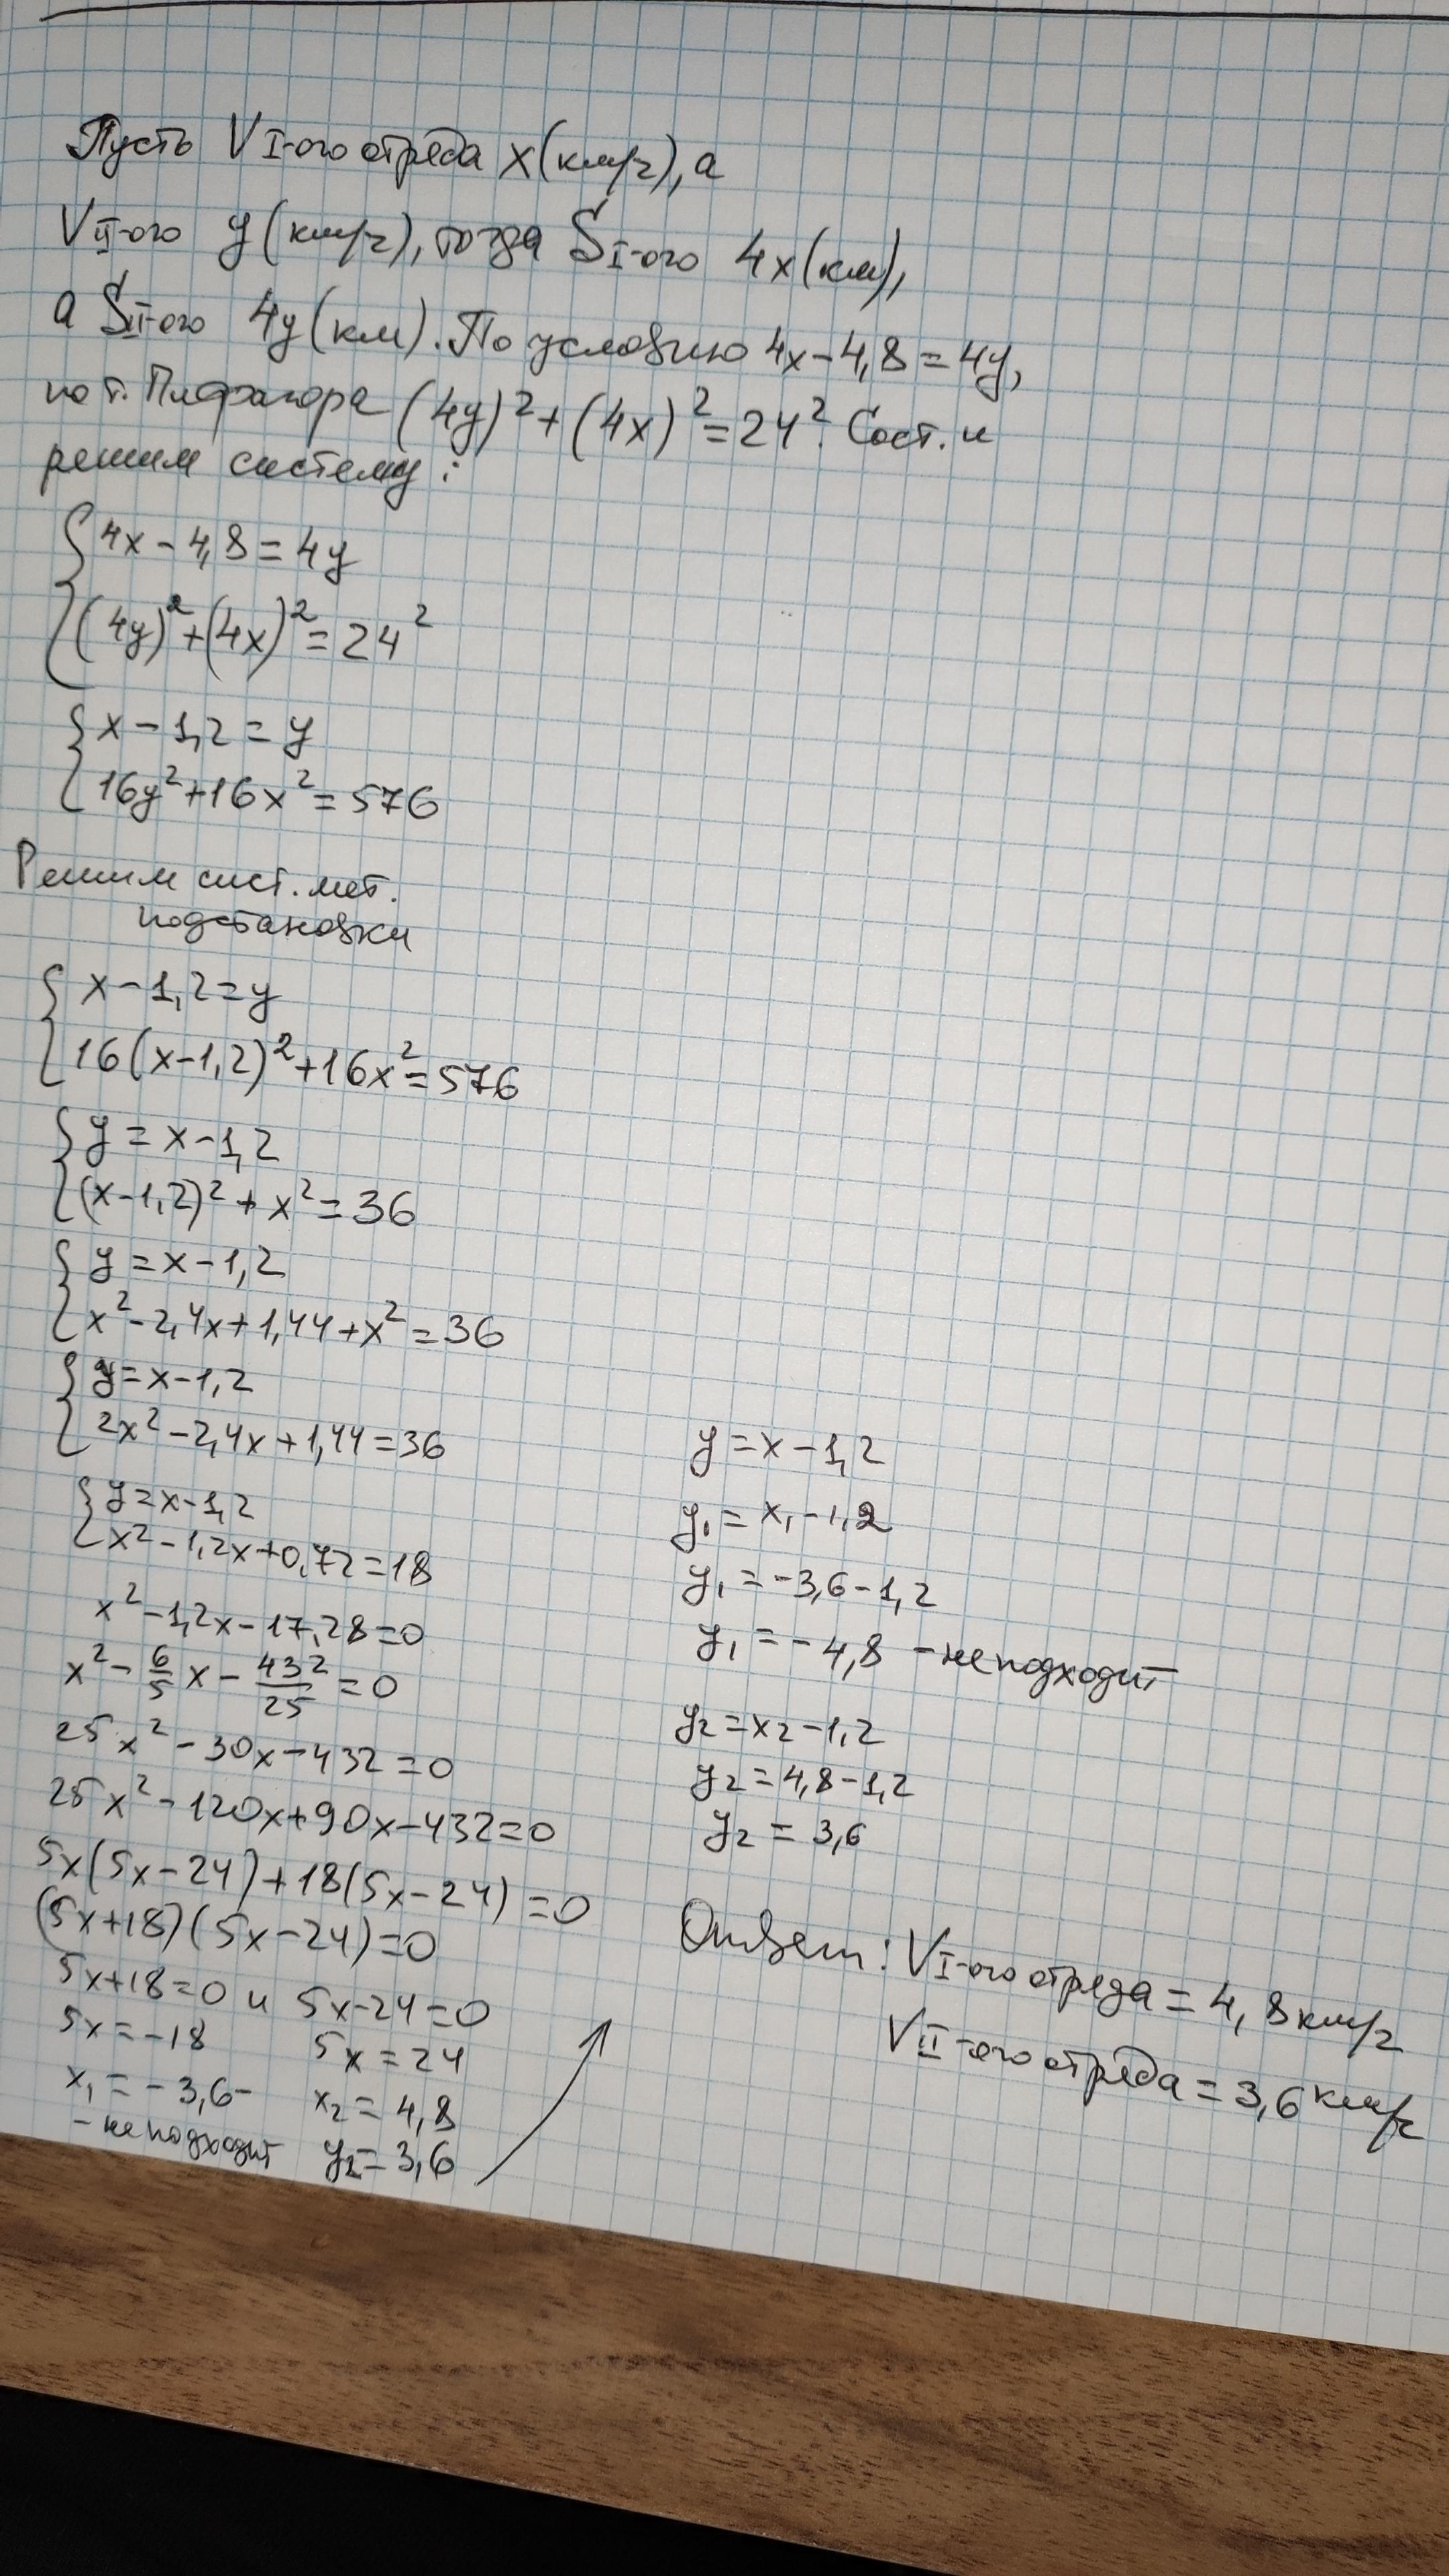 Пусть V I-ого отряда x(км/ч), а
V II-ого y(км/ч), тогда S I-ого 4x(км),
а S II-ого 4y(км). По условию 4x-4,8=4y,
по т. Пифагора (4y)²+(4x)²=24². Сост. и
решим систему:
{4x-4,8=4y
(4y)²+(4x)²=24²
{x-1,2=y
16y²+16x²=576
Решим сист. мет.
подстановки
{x-1,2=y
16(x-1,2)²+16x²=576
{y=x-1,2
(x-1,2)²+x²=36
{y=x-1,2
x²-2,4x+1,44+x²=36
{y=x-1,2
2x²-2,4x+1,44=36
{y=x-1,2
x²-1,2x+0,72=18
x²-1,2x-17,28=0
x²-6/5x-432/25=0
25x²-30x-432=0
25x²-120x+90x-432=0
5x(5x-24)+18(5x-24)=0
(5x+18)(5x-24)=0
5x+18=0 и 5x-24=0
5x=-18 5x=24
x₁=-3,6- x₂=4,8
-не подходит y₂=3,6
y=x-1,2
y₁=x₁-1,2
y₁=-3,6-1,2
y₁=-4,8 -не подходит
y₂=x₂-1,2
y₂=4,8-1,2
y₂=3,6
Ответ: V I-ого отряда=4,8км/ч
V II-ого отряда=3,6км/ч